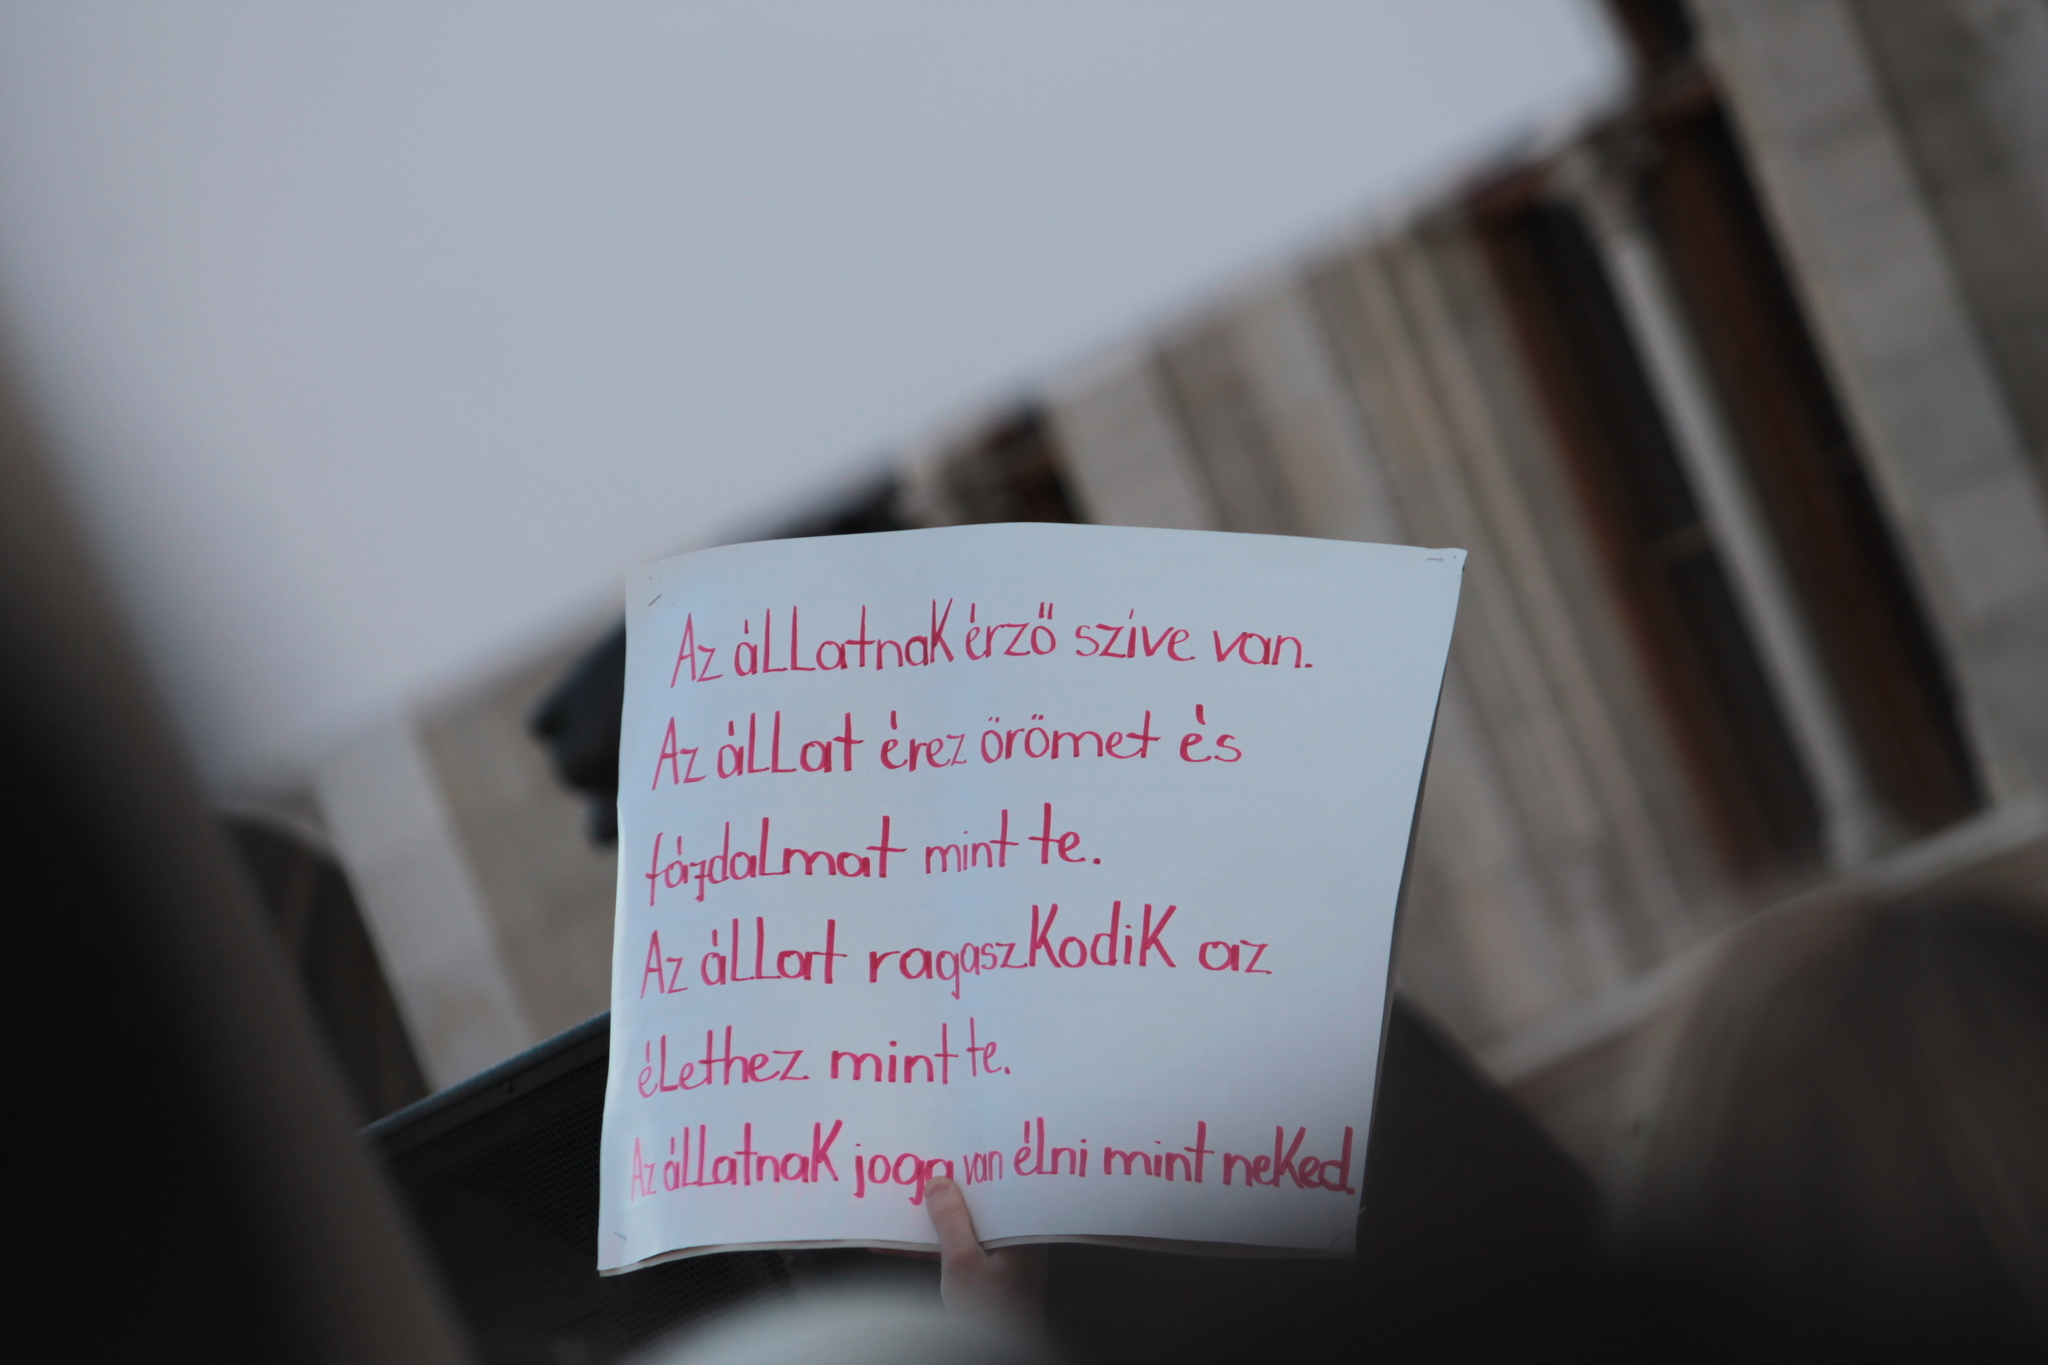 Az állatnak érző szive van.
Az állat érez örömet és
fájdalmat mint te.
Az állat ragaszkodik az
élethez mint te.
Az állatnak joga van élni mint neked.